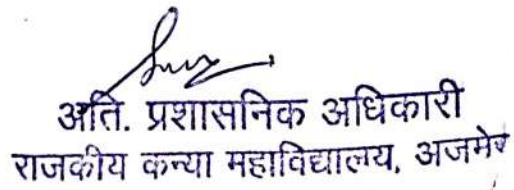 अति. प्रशासनिक अधिकारी
राजकीय कन्या महाविद्यालय, अजमेर